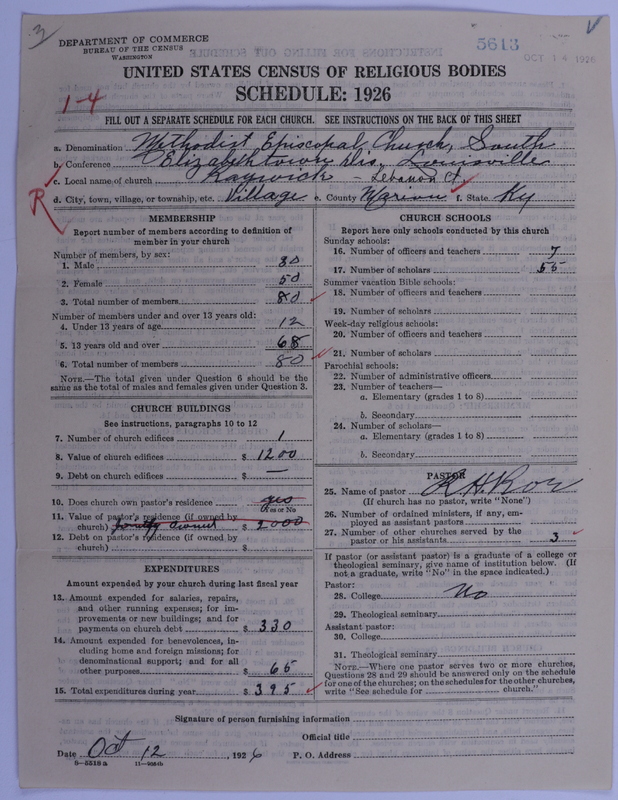 3
DEPARTMENT OF COMMERCE
BUREAU OF THE CENSUS
WASHINGTON
5613
OCT 14 1926
UNITED STATES CENSUS OF RELIGIOUS BODIES
SCHEDULE: 1926
1-4
FILL OUT A SEPARATE SCHEDULE FOR EACH CHURCH. SEE INSTRUCTIONS ON THE BACK OF THIS SHEET
a. Denomination Methodist Episcopal Church, South
b. Conference Elizabethtown Dis. Louisville
c. Local name of church Raywick - Lebanon Ct.
R
d. City, town, village, or township, etc. Village e. County Marion f. State Ky
MEMBERSHIP
Report number of members according to definition of
member in your church
Number of members, by sex:
1. Male 30
2. Female 50
3. Total number of members 80
Number of members under and over 13 years old:
4. Under 13 years of age 12
5. 13 years old and over 68
6. Total number of members 80
NOTE.—The total given under Question 6 should be the
same as the total of males and females given under Question 3.
CHURCH BUILDINGS
See instructions, paragraphs 10 to 12
7. Number of church edifices 1
8. Value of church edifices $ 1200
9. Debt on church edifices $ —
10. Does church own pastor's residence yes
Yes or No
11. Value of pastor's residence (if owned by
church) jointly owned $ 2000
12. Debt on pastor's residence (if owned by
church) $
EXPENDITURES
Amount expended by your church during last fiscal year
13. Amount expended for salaries, repairs,
and other running expenses; for im-
provements or new buildings; and for
payments on church debt $ 330
14. Amount expended for benevolences, in-
cluding home and foreign missions; for
denominational support; and for all
other purposes $ 65
15. Total expenditures during year $ 395
CHURCH SCHOOLS
Report here only schools conducted by this church
Sunday schools:
16. Number of officers and teachers 7
17. Number of scholars 55
Summer vacation Bible schools:
18. Number of officers and teachers
19. Number of scholars
Week-day religious schools:
20. Number of officers and teachers
21. Number of scholars
Parochial schools:
22. Number of administrative officers
23. Number of teachers—
a. Elementary (grades 1 to 8)
b. Secondary
24. Number of scholars—
a. Elementary (grades 1 to 8)
b. Secondary
PASTOR
25. Name of pastor R. H. Roe
(If church has no pastor, write "None")
26. Number of ordained ministers, if any, em-
ployed as assistant pastors
27. Number of other churches served by the
pastor or his assistants 3
If pastor (or assistant pastor) is a graduate of a college or
theological seminary, give name of institution below. (If
not a graduate, write "No" in the space indicated.)
Pastor:
28. College No
29. Theological seminary
Assistant pastor:
30. College
31. Theological seminary
NOTE.—Where one pastor serves two or more churches,
Questions 28 and 29 should be answered only on the schedule
for one of the churches; on the schedules for the other churches,
write "See schedule for church."
Signature of person furnishing information
Official title
Date Oct 12, 1926 P. O. Address
8-5518a 11-9084b